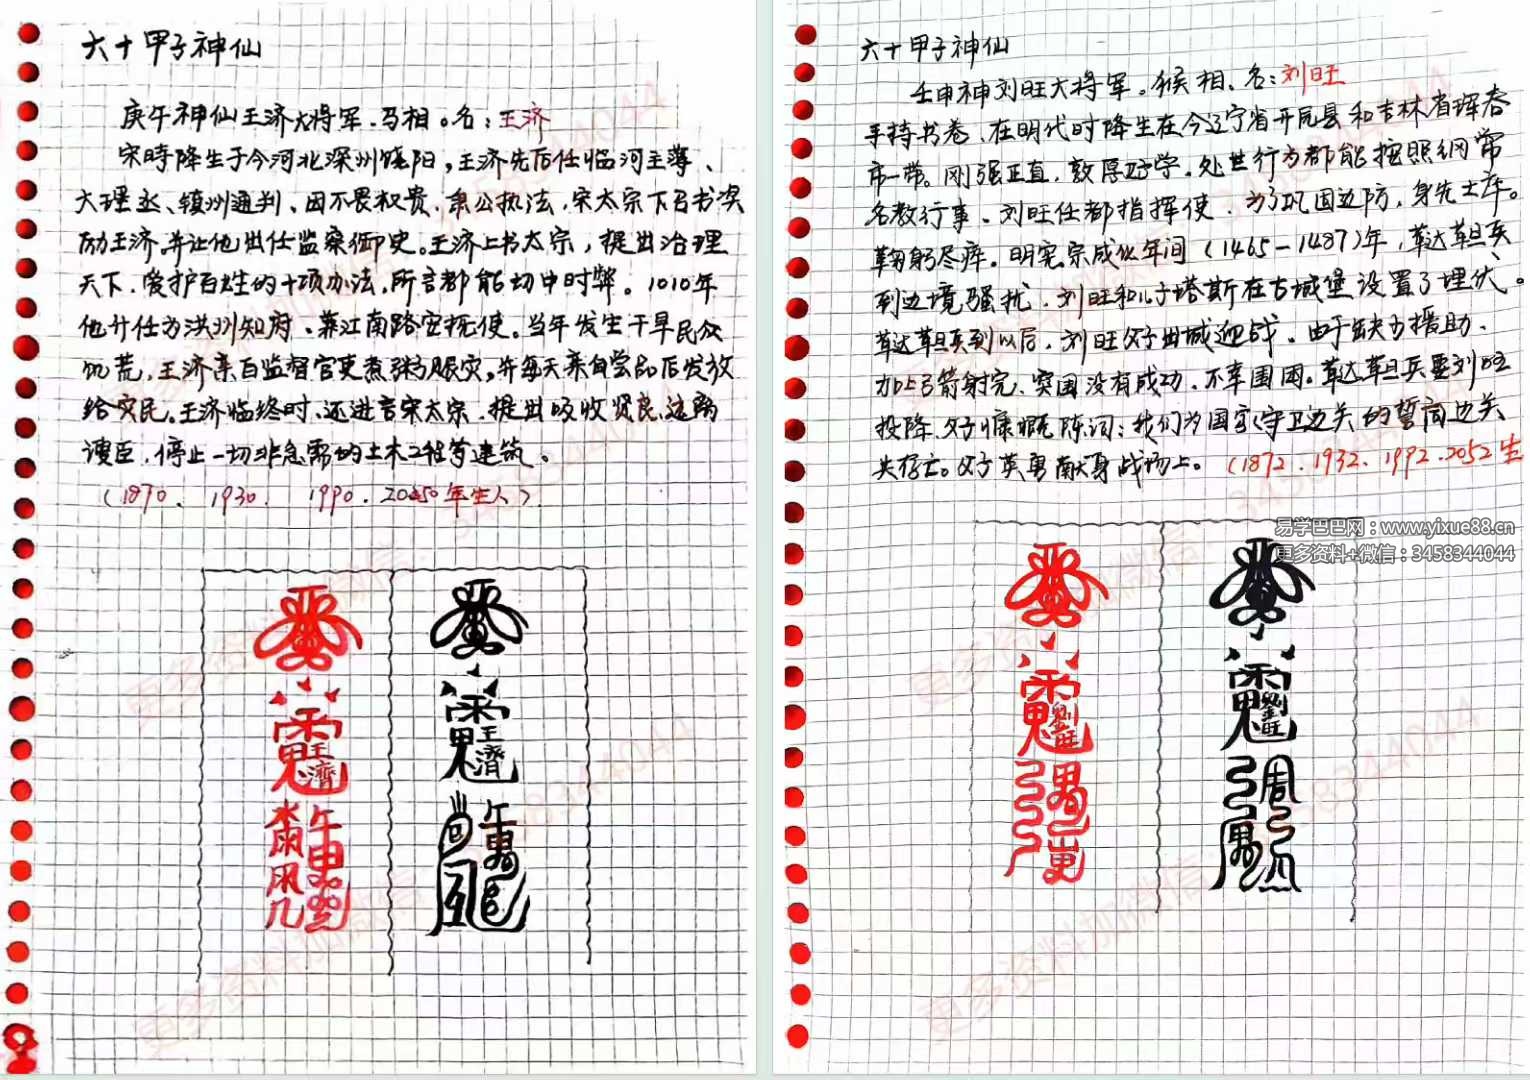 六十甲子神仙
庚午神仙王济大将军.马相。名：王济
宋時降生于今河北深州饶阳，王济先后任临河主薄、
大理丞、镇州通判、因不畏权贵，秉公执法，宋太宗下召书奖
励王济，并让他出任监察御史。王济上书太宗，提出治理
天下、爱护百姓的十项办法，所言都能切中时弊。1010年
他升任为洪州知府、兼江南路安抚使。当年发生干旱民众
饥荒，王济亲自监督官吏煮粥赈灾，并每天亲自尝品后发放
给灾民。王济临终时、还进言宋太宗、提出吸收贤良、远离
谗臣，停止一切非急需的土木工程等建筑。
（1870、1930、1990、2050年生人）
王濟
王濟
六十甲子神仙
壬申神刘旺大将军。猴相、名：刘旺
手持书卷、在明代时降生在今辽宁省开原县和吉林省珲春
市一带。刚强正直，敦厚好学。处世行为都能按照纲常
名教行事、刘旺任都指挥使，为了巩固边防，身先士卒。
鞠躬尽瘁。明宪宗成化年间（1465－1487）年，鞑靼兵
到边境骚扰，刘旺和儿子塔斯在古城堡设置了埋伏。
鞑靼兵到以后，刘旺父子出城迎战。由于缺少援助、
加上弓箭射完，突围没有成功，不幸围困。鞑靼兵要刘旺
投降，父子慷慨陈词：我们为国家守卫边关的誓同边关、
共存亡。父子英勇献身战场上。（1872、1932、1992、2052生
劉旺
劉旺
易学巴巴网：www.yixue88.cn
更多资料+微信：3458344044